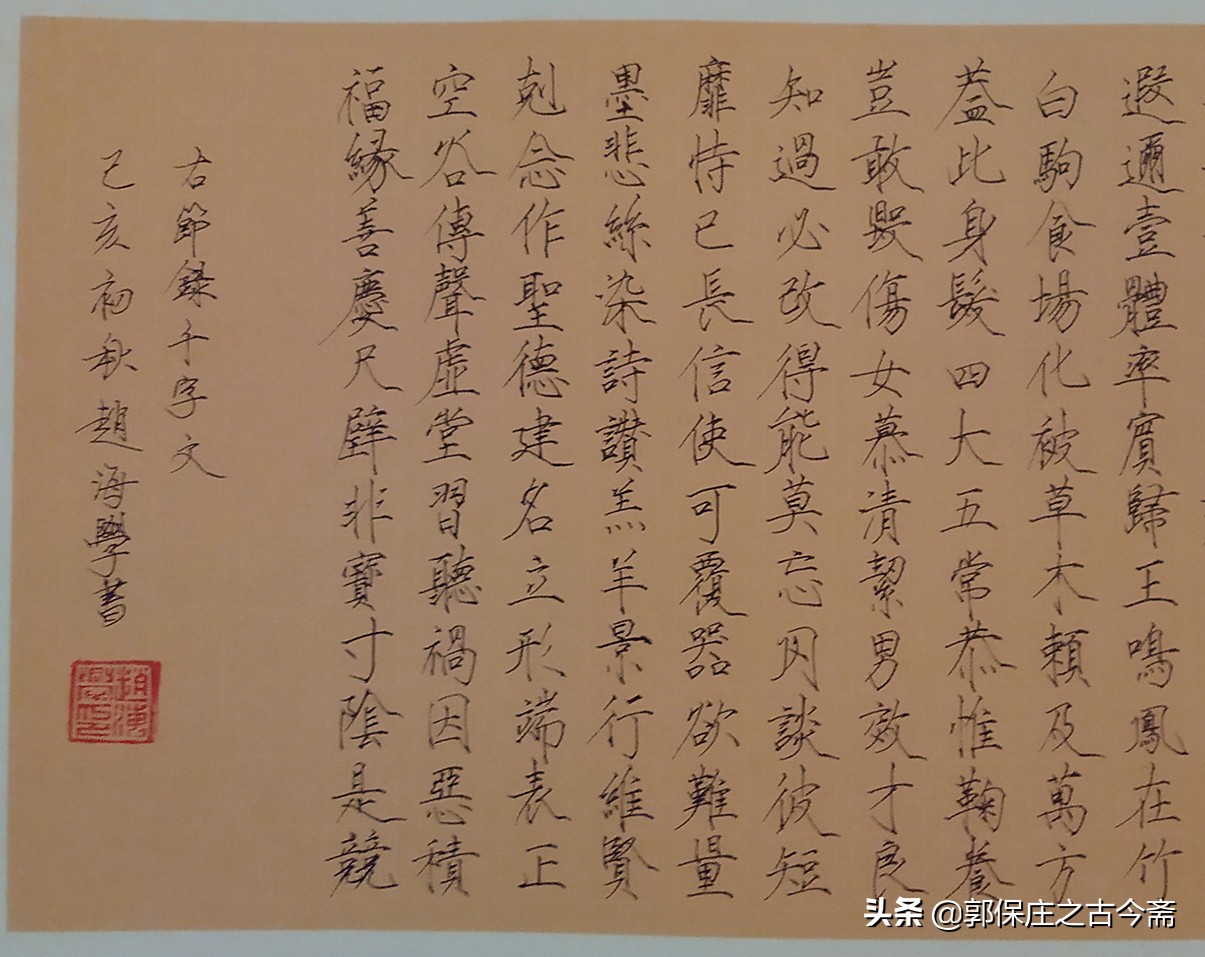 遐邇壹體率賓歸王鳴鳳在竹
白駒食場化被草木賴及萬方
蓋此身髮四大五常恭惟鞠養
豈敢毀傷女慕清絜男效才良
知過必改得能莫忘罔談彼短
靡恃己長信使可覆器欲難量
墨悲絲染詩讚羔羊景行維賢
剋念作聖德建名立形端表正
空谷傳聲虛堂習聽禍因惡積
福緣善慶尺璧非寶寸陰是競
右節錄千字文
己亥初秋趙海學書
头条 @郭保庄之古今斋